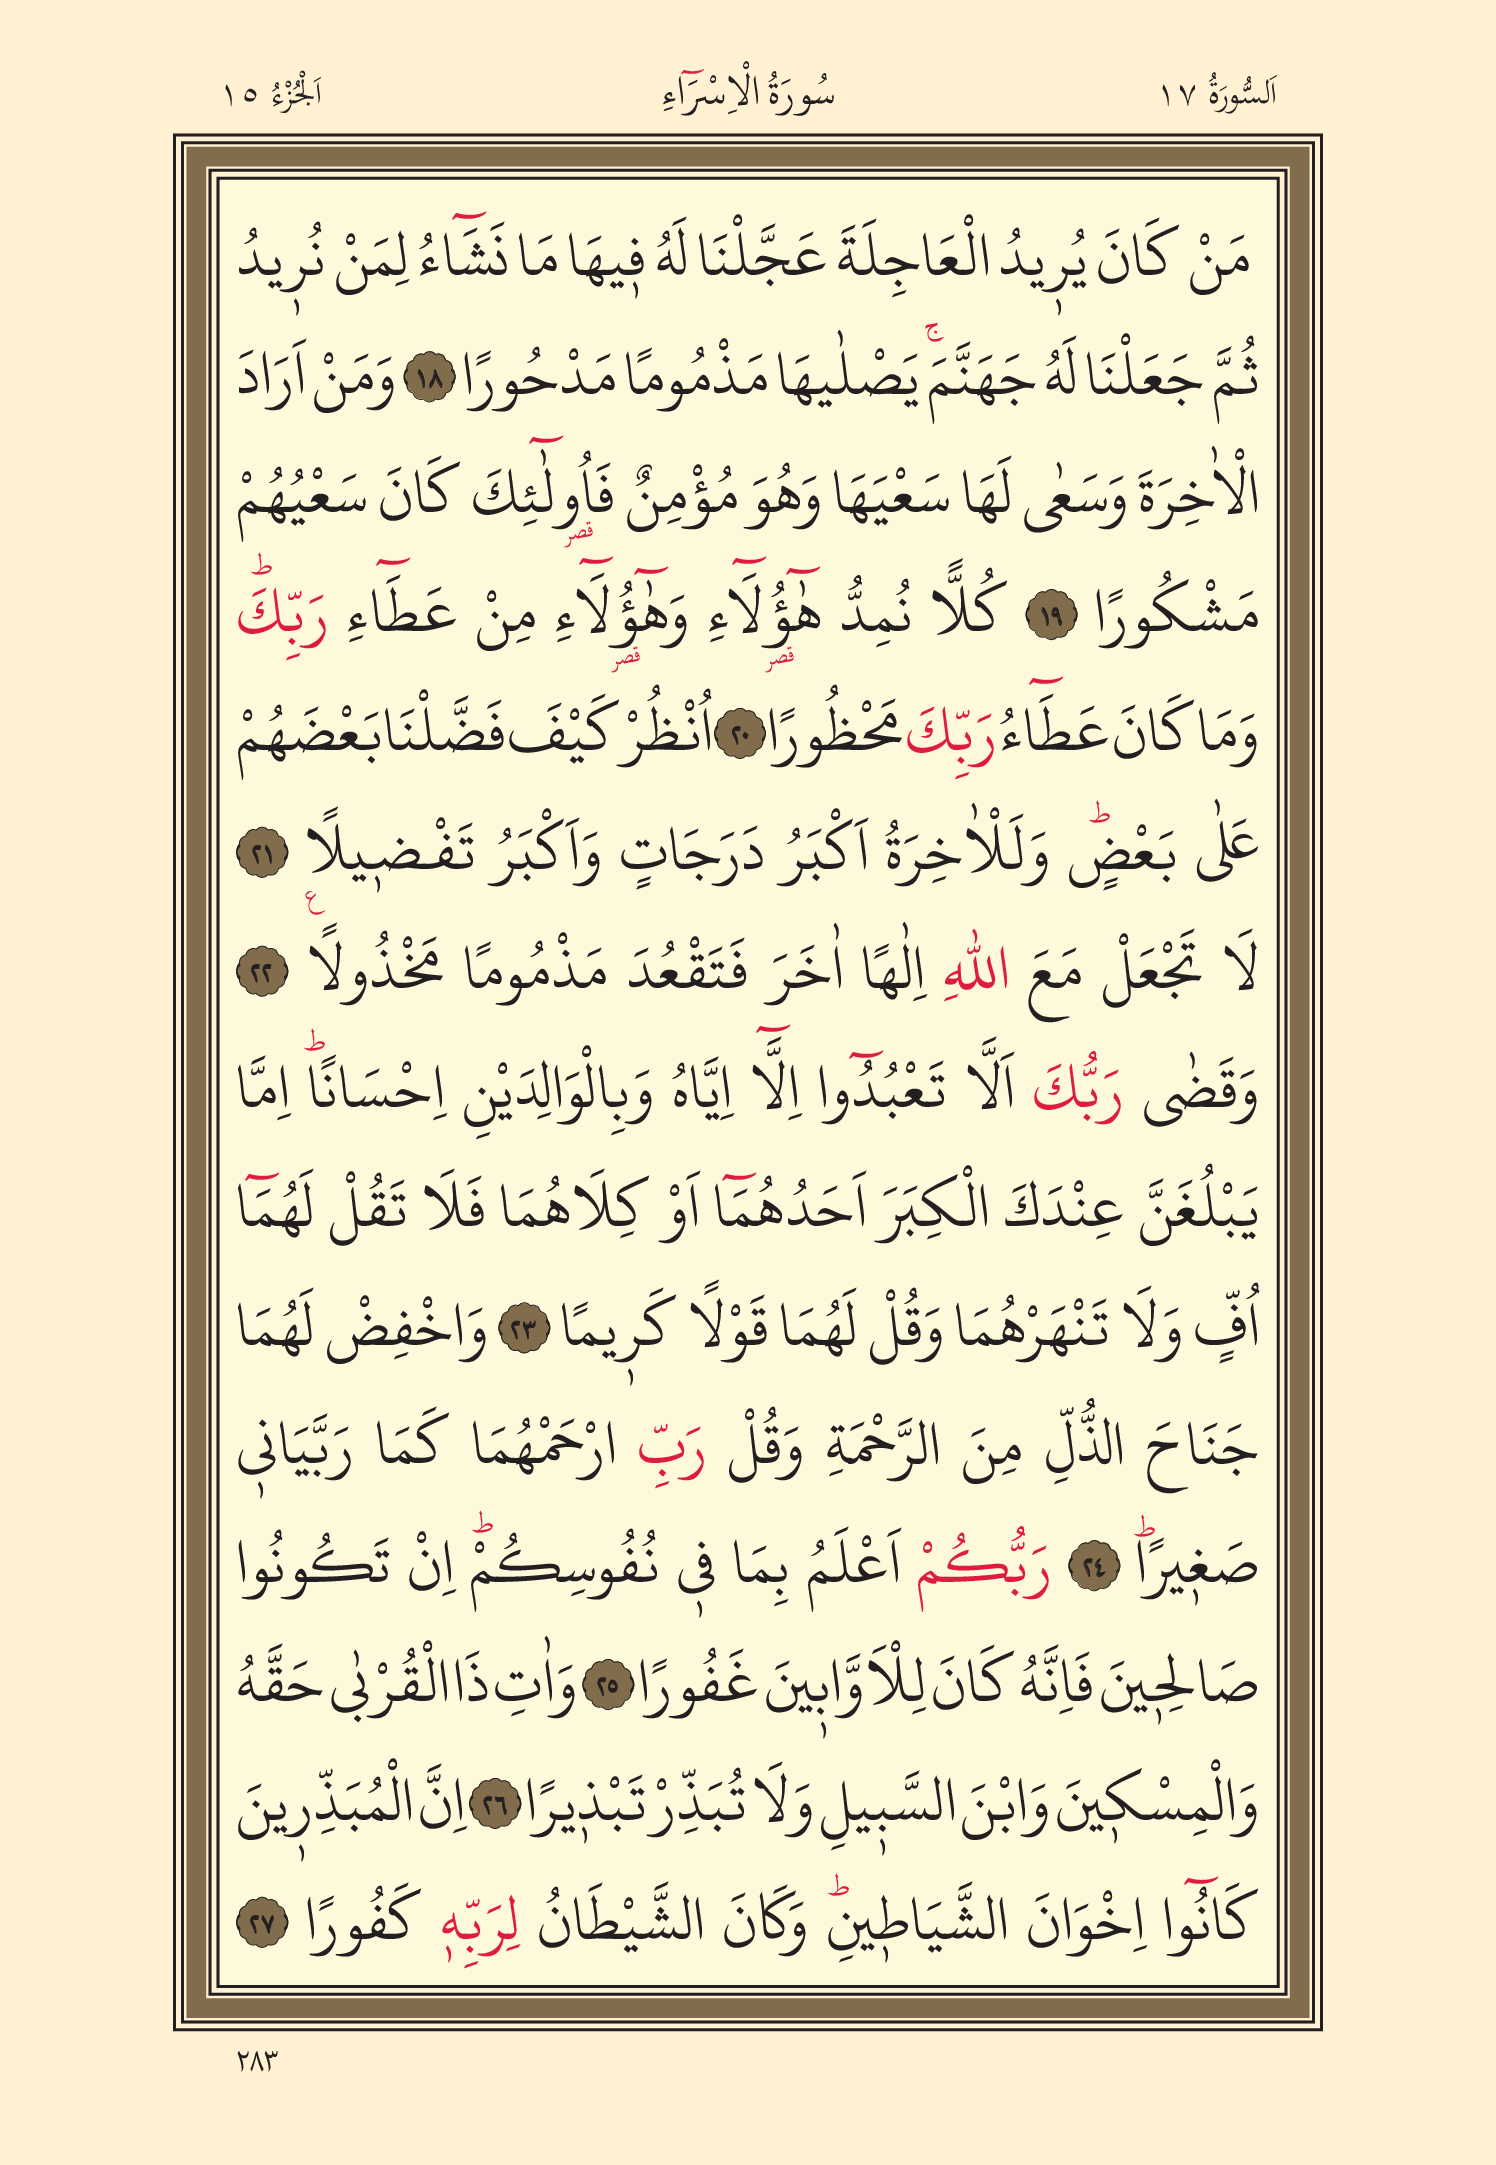 اَلسُّورَةُ ١٧ سُورَةُ الْاِسْرَٓاءِ اَلْجُزْءُ ١٥
مَنْ كَانَ يُر۪يدُ الْعَاجِلَةَ عَجَّلْنَا لَهُ ف۪يهَا مَا نَشَٓاءُ لِمَنْ نُر۪يدُ
ثُمَّ جَعَلْنَا لَهُ جَهَنَّمَۚ يَصْلٰيهَا مَذْمُومًا مَدْحُورًا ﴿١٨﴾ وَمَنْ اَرَادَ
الْاٰخِرَةَ وَسَعٰى لَهَا سَعْيَهَا وَهُوَ مُؤْمِنٌ فَاُو۬لٰٓئِكَ كَانَ سَعْيُهُمْ
قصر
مَشْكُورًا ﴿١٩﴾ كُلًّا نُمِدُّ هٰٓؤُ۬لَٓاءِ وَهٰٓؤُ۬لَٓاءِ مِنْ عَطَٓاءِ رَبِّكَۜ
قصر قصر
وَمَا كَانَ عَطَٓاءُ رَبِّكَ مَحْظُورًا ﴿٢٠﴾ اُنْظُرْ كَيْفَ فَضَّلْنَا بَعْضَهُمْ
عَلٰى بَعْضٍۜ وَلَلْاٰخِرَةُ اَكْبَرُ دَرَجَاتٍ وَاَكْبَرُ تَفْض۪يلًا ﴿٢١﴾
لَا تَجْعَلْ مَعَ اللّٰهِ اِلٰهًا اٰخَرَ فَتَقْعُدَ مَذْمُومًا مَخْذُولًا ع ﴿٢٢﴾
وَقَضٰى رَبُّكَ اَلَّا تَعْبُدُٓوا اِلَّٓا اِيَّاهُ وَبِالْوَالِدَيْنِ اِحْسَانًاۜ اِمَّا
يَبْلُغَنَّ عِنْدَكَ الْكِبَرَ اَحَدُهُمَٓا اَوْ كِلَاهُمَا فَلَا تَقُلْ لَهُمَٓا
اُفٍّ وَلَا تَنْهَرْهُمَا وَقُلْ لَهُمَا قَوْلًا كَر۪يمًا ﴿٢٣﴾ وَاخْفِضْ لَهُمَا
جَنَاحَ الذُّلِّ مِنَ الرَّحْمَةِ وَقُلْ رَبِّ ارْحَمْهُمَا كَمَا رَبَّيَان۪ي
صَغ۪يرًاۜ ﴿٢٤﴾ رَبُّكُمْ اَعْلَمُ بِمَا ف۪ي نُفُوسِكُمْۜ اِنْ تَكُونُوا
صَالِح۪ينَ فَاِنَّهُ كَانَ لِلْاَوَّاب۪ينَ غَفُورًا ﴿٢٥﴾ وَاٰتِ ذَا الْقُرْبٰى حَقَّهُ
وَالْمِسْك۪ينَ وَابْنَ السَّب۪يلِ وَلَا تُبَذِّرْ تَبْذ۪يرًا ﴿٢٦﴾ اِنَّ الْمُبَذِّر۪ينَ
كَانُٓوا اِخْوَانَ الشَّيَاط۪ينِۜ وَكَانَ الشَّيْطَانُ لِرَبِّه۪ كَفُورًا ﴿٢٧﴾
٢٨٣